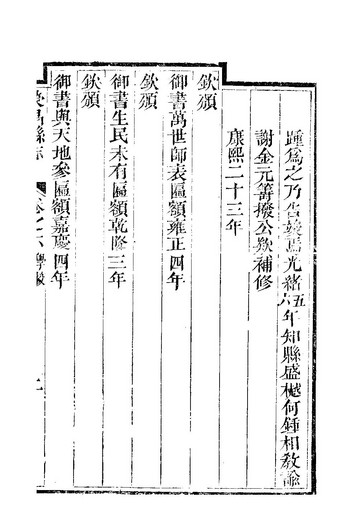 踵爲之乃告竣焉光緒五六年知縣盛樾何鍾相教諭
謝金元籌撥公欵補修
康熙二十三年
欽頒
御書萬世師表匾額雍正四年
欽頒
御書生民未有匾額乾隆三年
欽頒
御書與天地參匾額嘉慶四年
昌縣志 卷之六 學校